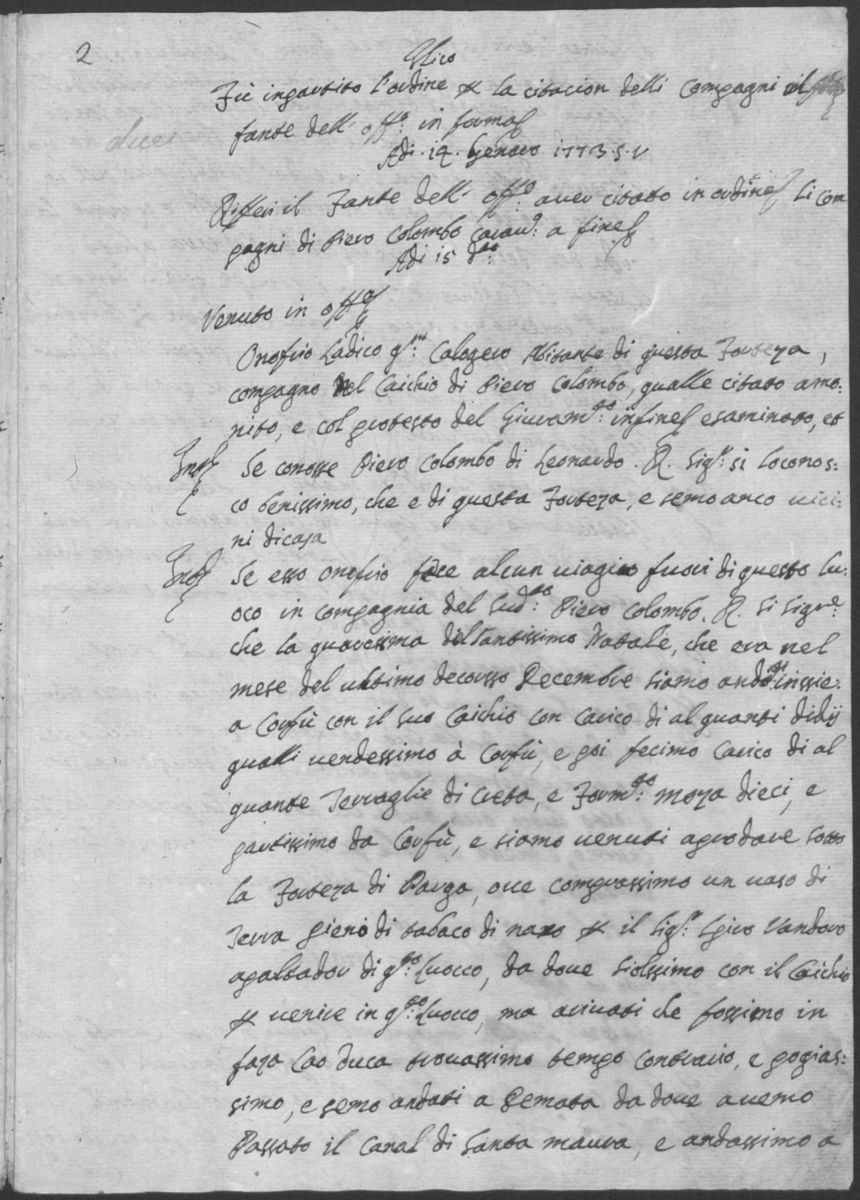 2
Fù impartito l'ordine p la citacion delli Compagni al
fante dell' offo: in forma
Adi. 14. Genaro 1773. S. V
Rifferì il Fante dell' offo: aver citato in ordine li Com
pagni di Piero Colombo a fine
Adi 15 do:
Venuto in offo
Onofrio Ladico qm: Calogero Abitante di questa Forteza,
compagno del Caichio di Piero Colombo, qualle citato amo:
nito, e col protesto del Giuramto: infine esaminato, et
Into Se conosse Piero Colombo di Leonardo. R. Sigr: si lo conos:
co benissimo, che e di questa Forteza, e semo anco vici:
ni di casa
Into Se esso Onofrio fece alcun viagio fuori di questo Lu:
oco in compagnia del Sudto: Piero Colombo. R. Si Signr:
che la quaresima del Santissimo Natale, che era nel
mese del ultimo decorso Decembre siamo andati inssie:
a Corfù con il suo Caichio con carico di alquanti
qualli vendessimo à Corfù, e poi fecimo carico di al
quante Terraglie di Creta, e Formto: moza dieci, e
partissimo da Corfù, e siamo venuti aprodare sotto
la Forteza di Parga, ove comprassimo un vaso di
Terra pieno di tabaco di naso p il Sigr: Spiro Vandoro
apaltador di qto: Luoco, da dove siolssimo con il Caichio
p venire in qto: Luoco, ma arivati che fossimo in
faza Cao duca trovassimo tempo contrario, e pogias:
simo, e semo andati a Demata da dove avemo
Passato il Canal di Santa maura, e andassimo a